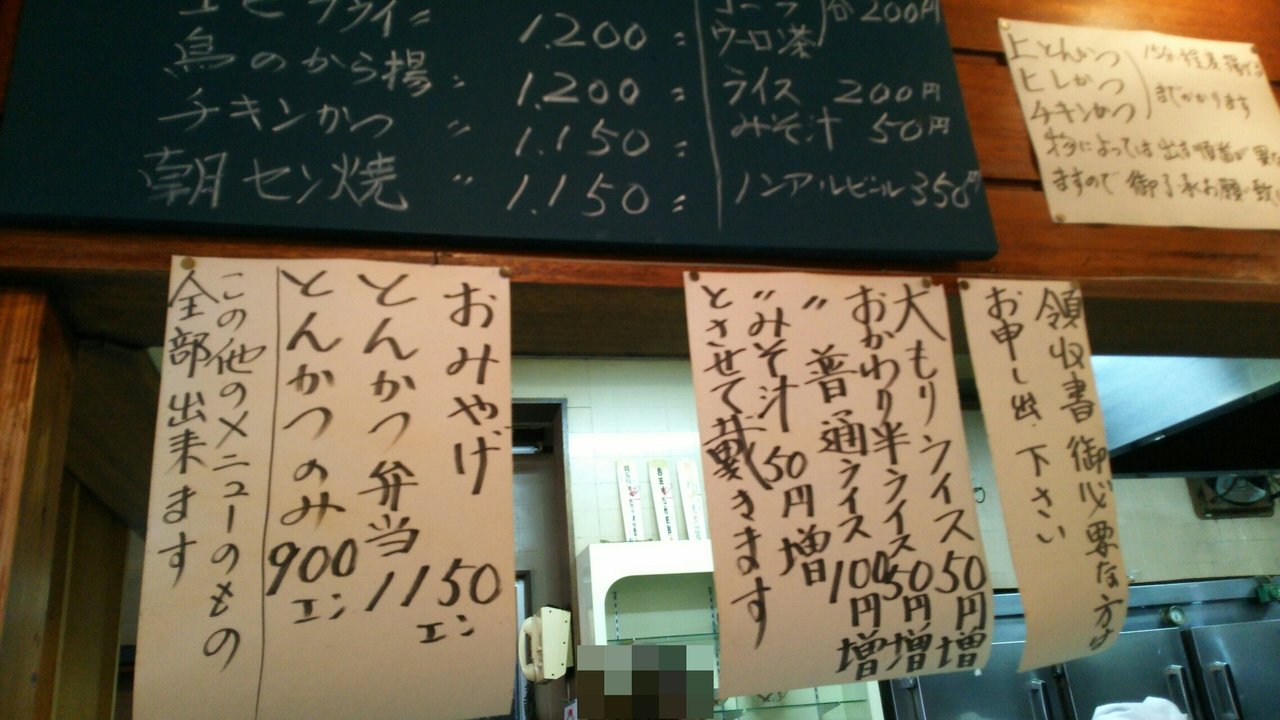 エビフライ 〃 1.200 〃
鳥のから揚 〃 1.200 〃
チキンかつ 〃 1.150 〃
朝セン焼 〃 1.150 〃
コーラ
ウーロン茶
各200円
ライス 200円
みそ汁 50円
ノンアルビール 350円
上とんかつ
ヒレかつ
チキンかつ
までかかります
によっては出す順番が
ますので御了承お願い致し
おみやげ
とんかつ弁当 1150エン
とんかつのみ 900エン
この他のメニューのもの
全部出来ます
大もりライス50円増
おかわり半ライス50円増
〃 普通ライス100円増
〃みそ汁50円増
とさせて戴きます
領収書御必要な方は
お申し出下さい